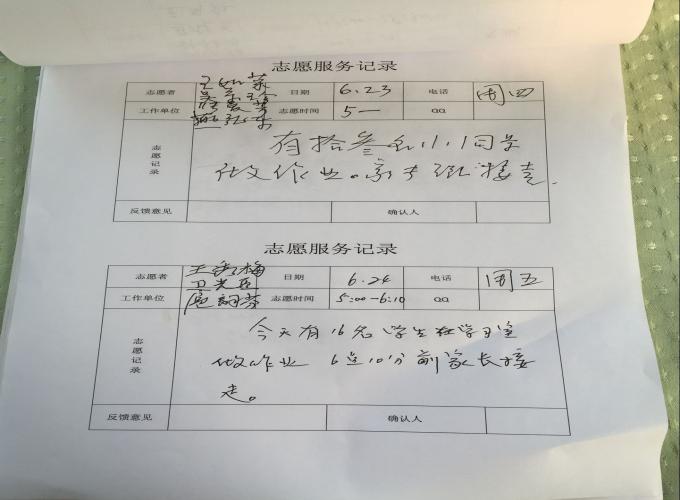 志愿服务记录
志愿者 王 荣 日期 6.23 电话 周四
工作单位 志愿时间 5— QQ
志愿记录
有拾叁名小小同学
做文作业。家长 接走.
反馈意见 确认人
志愿服务记录
志愿者 王 梅 日期 6.24 电话 周五
工作单位 志愿时间 5:00-6:10 QQ
志愿记录
今天有16名学生在学习室
做作业 6点10分前家长接
走。
反馈意见 确认人